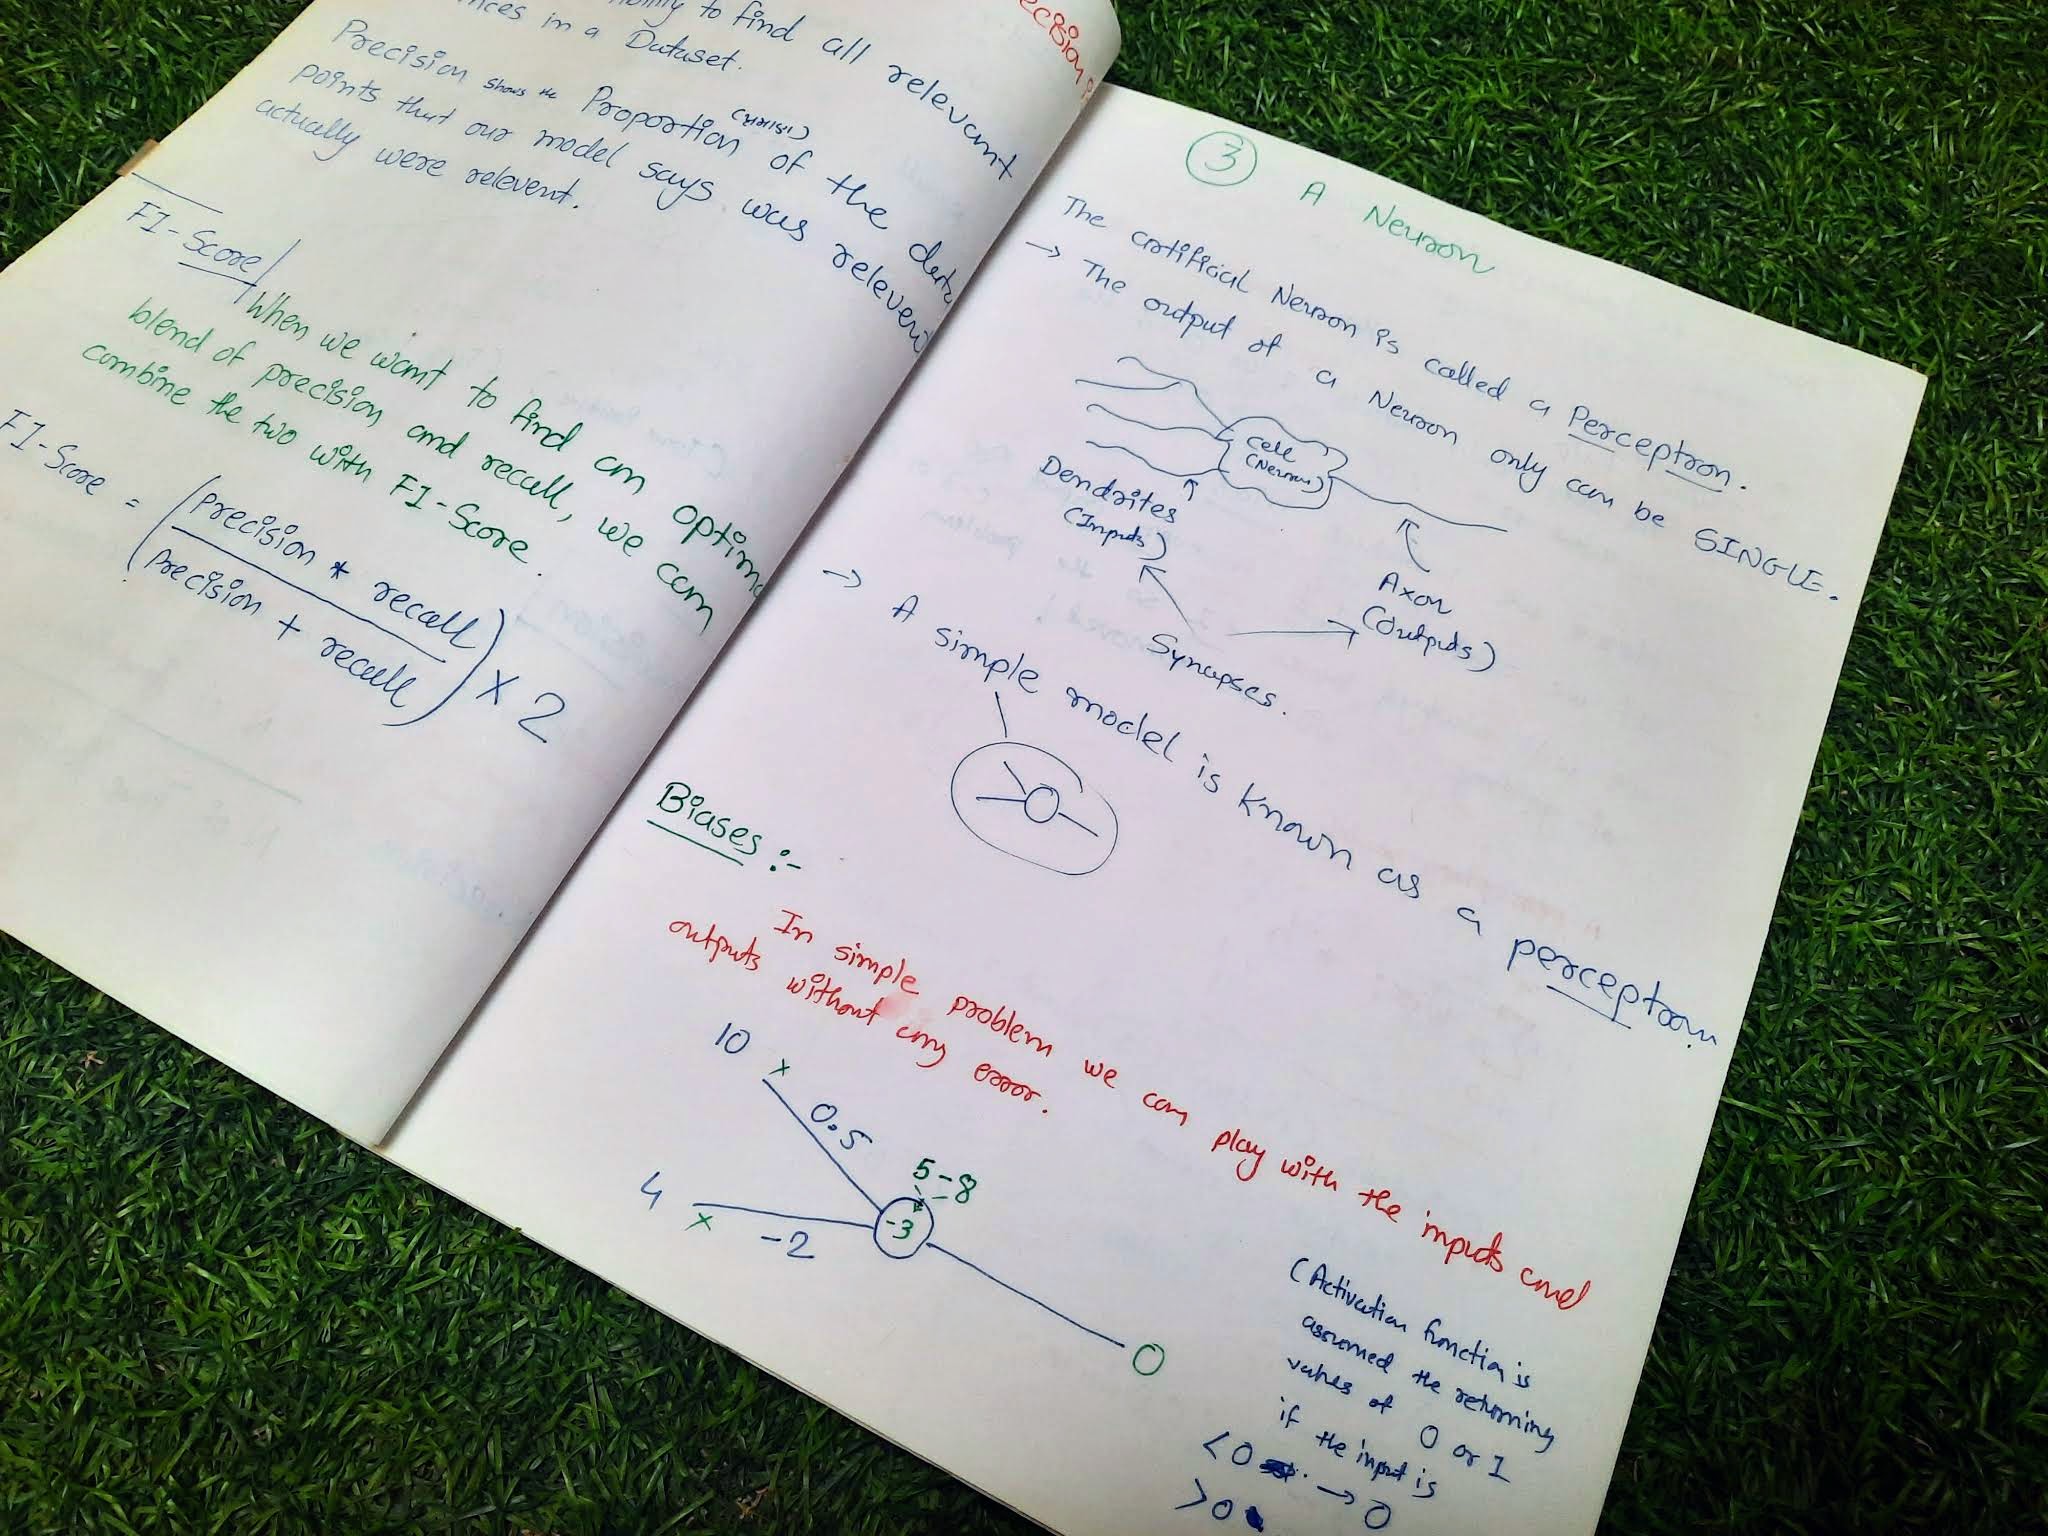 to find all relevant
in a Dataset.
Precision shows the Proportion of the data
points that our model says was relevent
actually were relevent.
F1-Score
When we want to find an optima
blend of precision and recall, we can
combine the two with F1-Score.
F1-Score = (Precision * recall
Precision + recall) × 2
3 A Neuron
The artificial Neuron is called a Perceptron.
→ The output of a Neuron only can be SINGLE.
Cell
(Neuron)
Dendrites
(Inputs)
Axon
(Outputs)
Synapses.
→ A simple model is known as a perceptron.
Biases :-
In simple problem we can play with the inputs and
outputs without any error.
10 ×
0.5
5 -8
4 ×
-2
-3
0
(Activation function is
assumed the returning
values of 0 or 1
if the input is
<0 → 0
>0